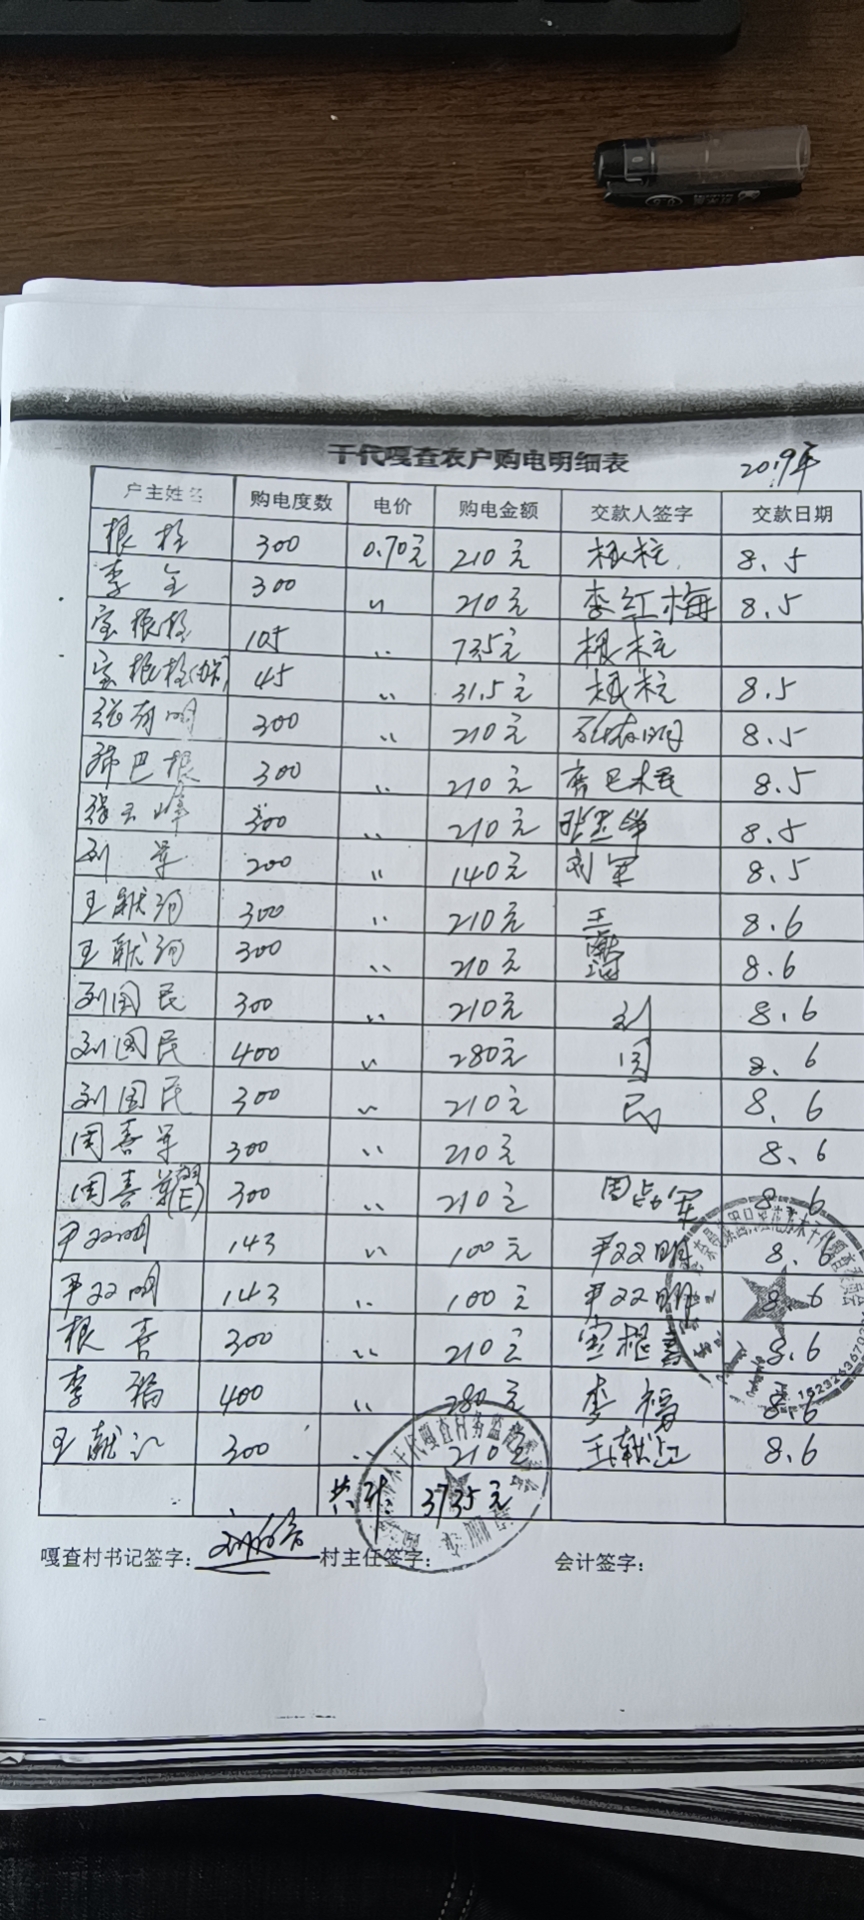 干代嘎查农户购电明细表
2019年
户主姓名 购电度数 电价 购电金额 交款人签字 交款日期
根柱 300 0.70元 210元 根柱 8.5
李全 300 〃 210元 李红梅 8.5
宝根柱 105 〃 73.5元 根柱
宝根柱 45 〃 31.5元 根柱 8.5
张有明 300 〃 210元 张有明 8.5
巴根 300 〃 210元 8.5
张玉峰 300 〃 210元 8.5
刘军 200 〃 140元 刘军 8.5
王献河 300 〃 210元 王 8.6
王献河 300 〃 210元 8.6
刘国民 300 〃 210元 刘 8.6
刘国民 400 〃 280元 国 8.6
刘国民 300 〃 210元 民 8.6
周喜军 300 〃 210元 8.6
周喜军 300 〃 210元 周喜军 8.6
尹双明 143 〃 100元 尹双明 8.6
尹双明 143 〃 100元 尹双明 8.6
根喜 300 〃 210元 宝根喜 8.6
李福 400 〃 280元 李福 8.6
王献江 300 〃 210元 王献江 8.6
共计: 3735元
嘎查村书记签字: 村主任签字: 会计签字: